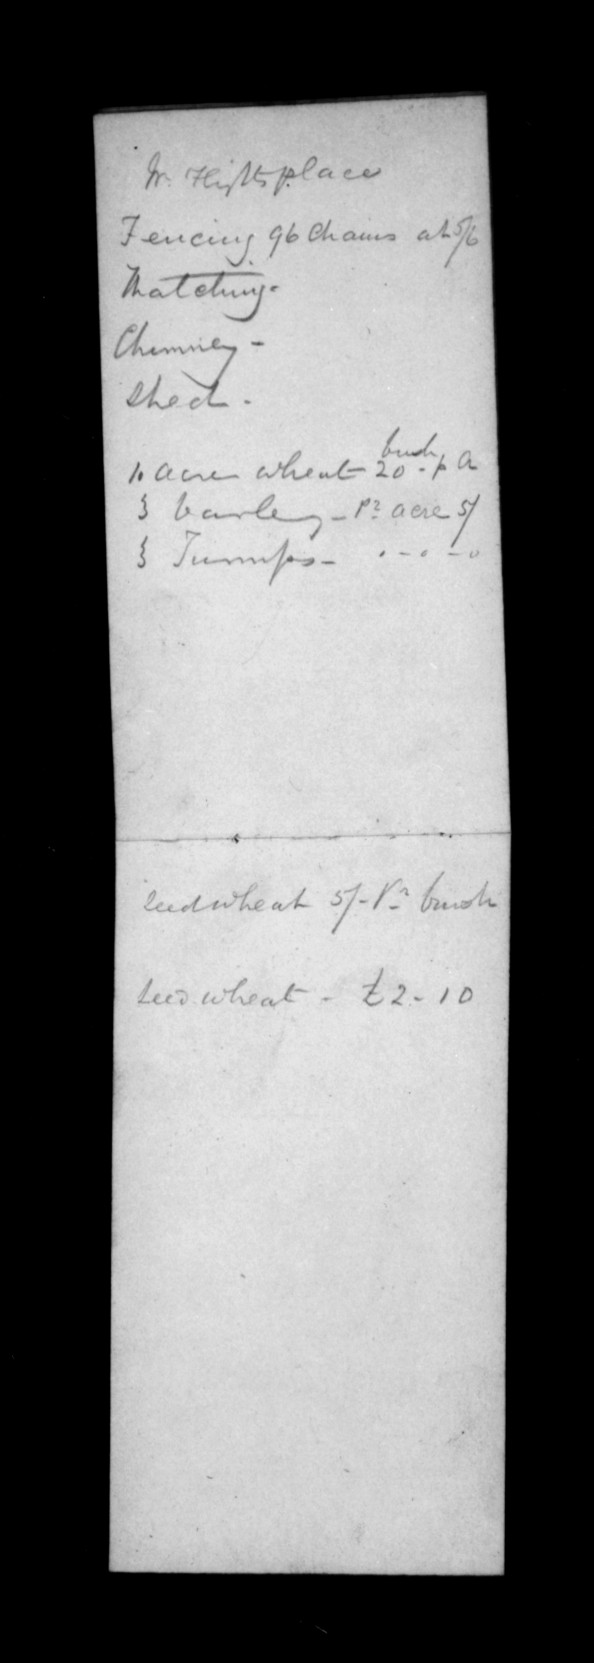 Mr Flights place
Fencing 96 Chains at 5/6
Thatching -
Chimney -
Shed -
10 acre wheat 20 bush p a
3 barley - Pr acre 5/
3 Turnips - " - " - "
Seed wheat 5/- Pr bush
Seed wheat - £2 - 10